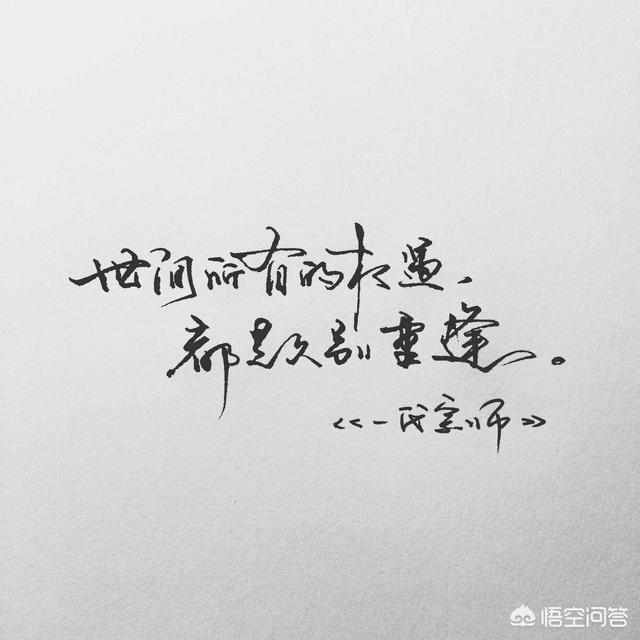 世间所有的相遇，
都是久别重逢。
《一代宗师》
悟空问答